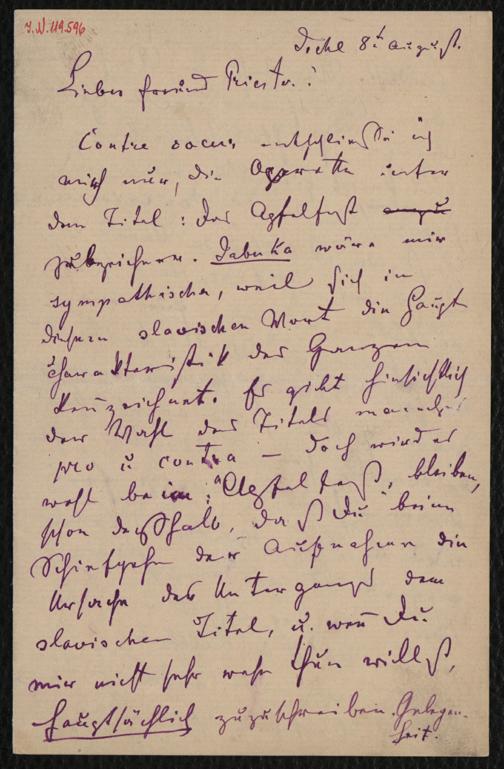 I.N. 119.596
Ischl 8t August.
Lieber Freund Priester!
Contre coeur entschließe ich
mich nur, die Operette unter
dem Titel: Das Apfelfest
zu bezeichnen. Jabuka wäre mir
sympathischer, weil sich in
diesem slavischen Wort die Haupt
charakteristik des Ganzen
kennzeichnet. Es gibt hinsichtlich
der Wahl des Titels manches
pro u contra – doch wird es
wohl beim "Apfelfest" bleiben,
schon deßhalb, daß Du beim
Schiefgehn der Aufnahme die
Ursache des Untergangs dem
slavischen Titel, u. wenn Du
mir nicht sehr wehe thun willst,
hauptsächlich zuzuschreiben Gelegen-
heit.